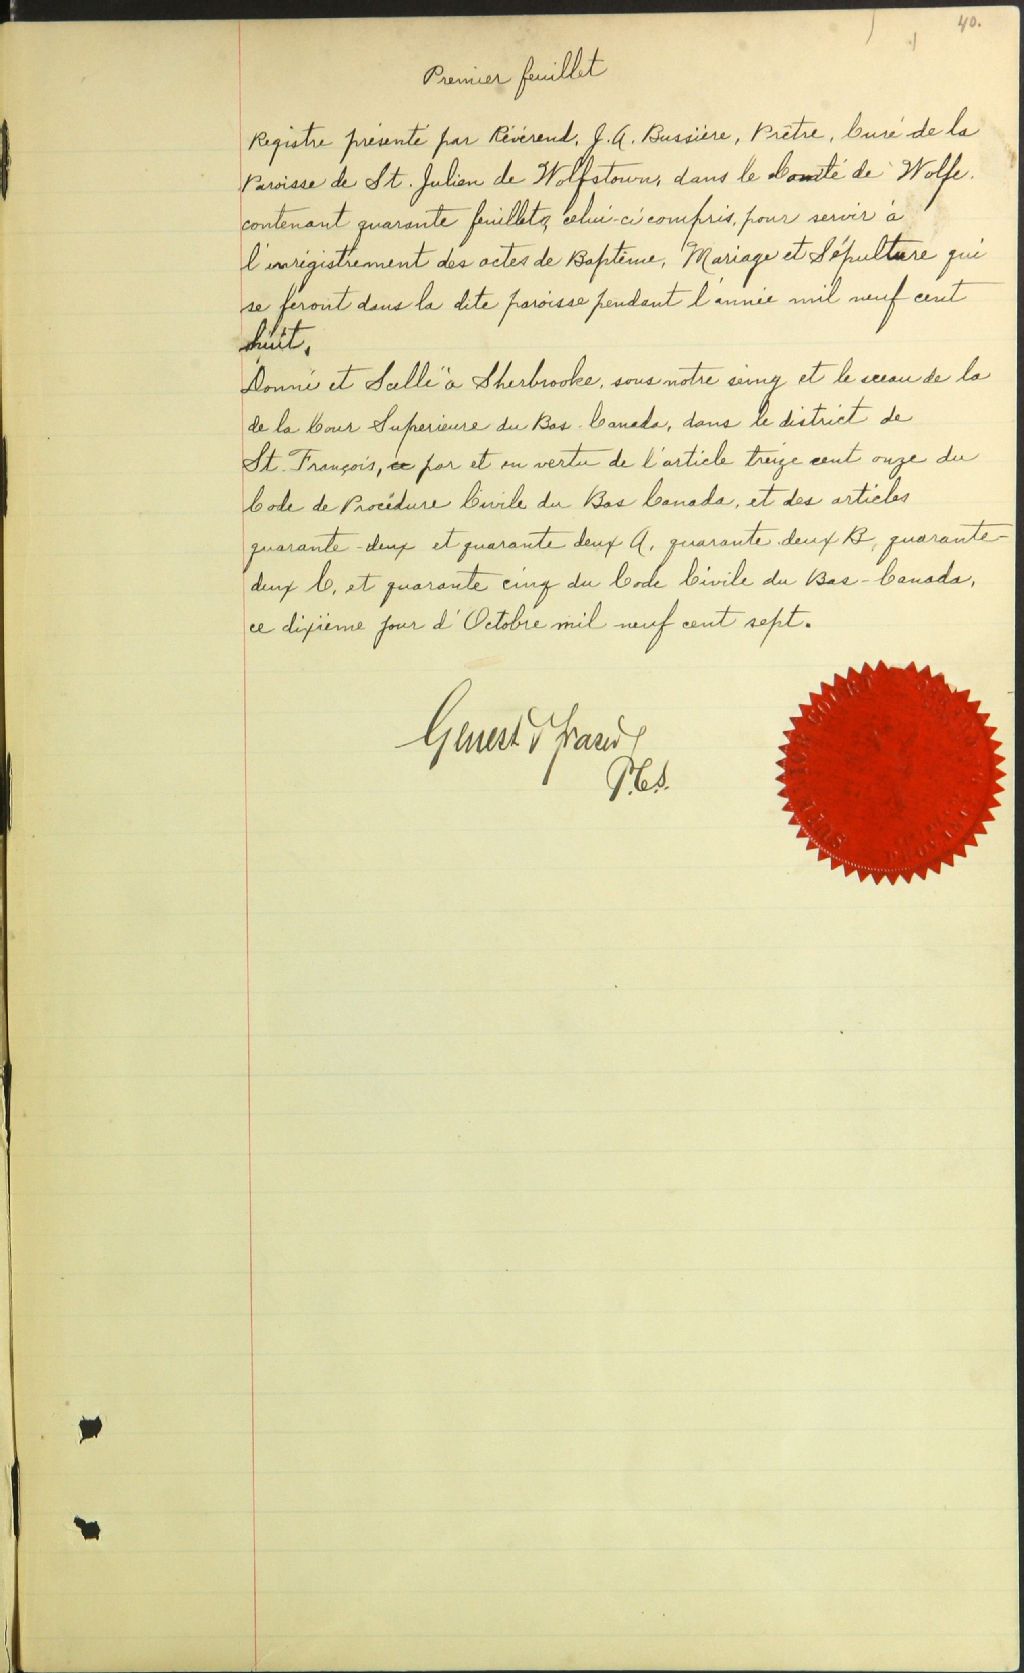 40.
Premier feuillet
Registre présenté par Révérend, J. A. Bussière, Prêtre, Curé de la
Paroisse de St. Julien de Wolfstown, dans le Comté de Wolfe.
contenant quarante feuillets, celui-ci compris, pour servir à
l'enrégistrement des actes de Baptême, Mariage et Sépulture qui
se feront dans la dite paroisse pendant l'année mil neuf cent
huit.
Donné et Scellé à Sherbrooke, sous notre seing et le sceau de la
de la Cour Superieure du Bas-Canada, dans le district de
St. François, ce par et en vertu de l'article treize cent onze du
Code de Procédure Civile du Bas Canada, et des articles
quarante-deux et quarante deux A, quarante deux B, quarante-
deux C, et quarante cinq du Code Civile du Bas-Canada,
ce dixième jour d'Octobre mil neuf cent sept.
Genest & Fraser
P.C.S.
SUPERIOR COURT